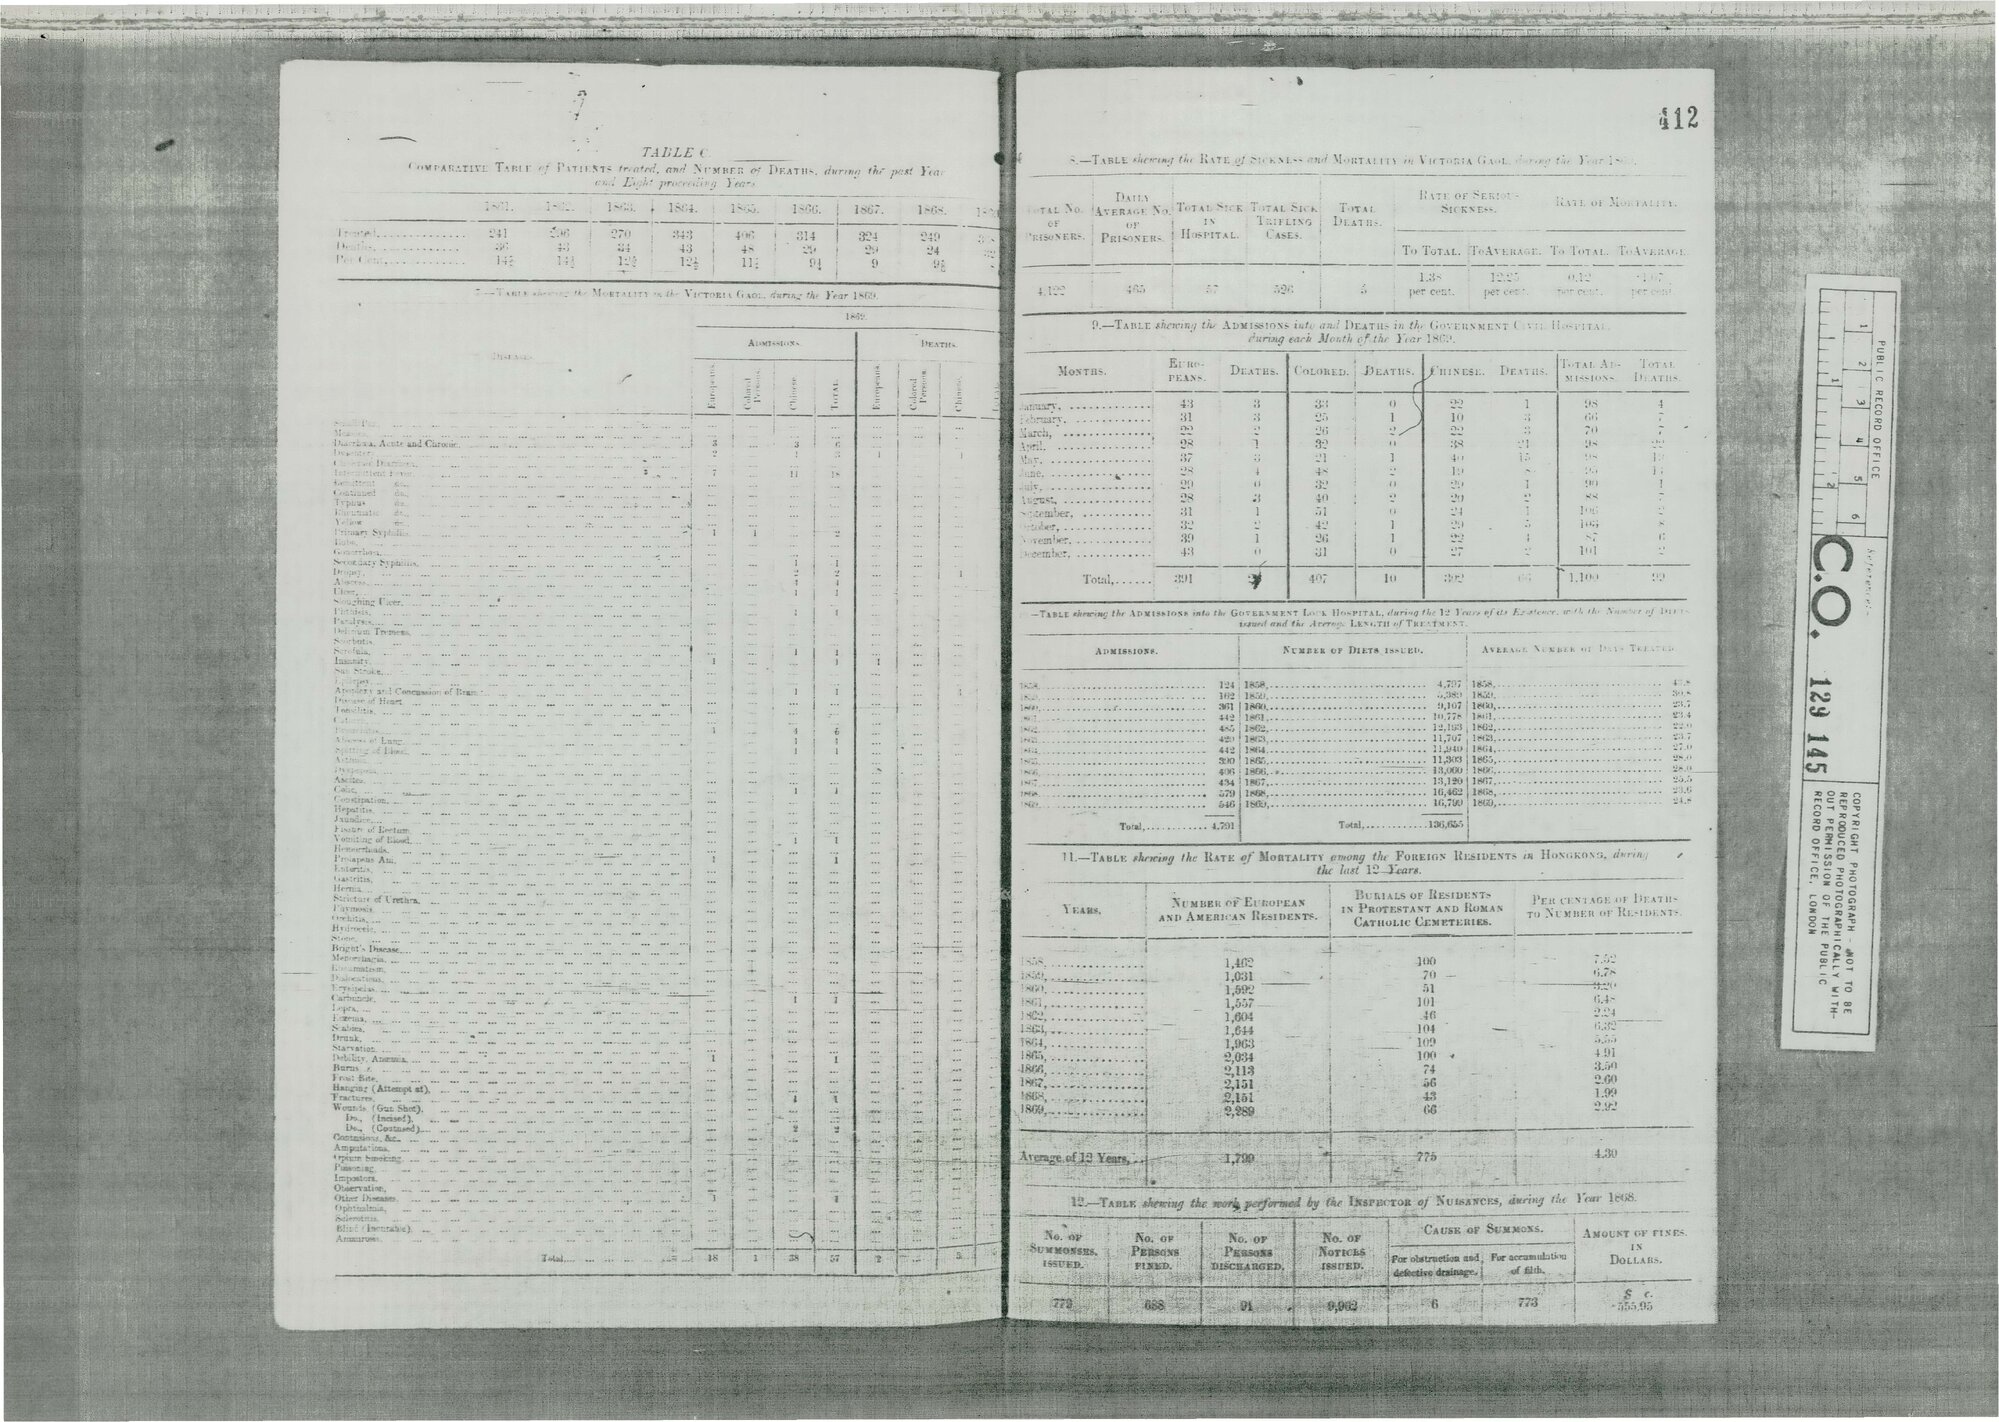 TABLE C.
COMPARATIVE TABLE of PATIENTS treated, and NUMBER of DEATHS, during the past Year
and Eight proceeding Years
1861. 1862. 1863. 1864. 1865. 1866. 1867. 1868.
Treated, 241 296 270 343 406 314 324 249
Deaths, 36 43 34 43 48 29 29 24
Per Cent, 9
7.—TABLE shewing the MORTALITY in the VICTORIA GAOL, during the Year 1869.
1869.
DISEASES.
ADMISSIONS. DEATHS.
Europeans. Colored Persons. Chinese. TOTAL. Europeans. Colored Persons. Chinese.
Diarrhœa, Acute and Chronic, 3 3 6
Intermittent Fever, 7 11 18
Remittent do.,
Continued do.,
Typhus do.,
Rheumatic do.,
Yellow do.,
Primary Syphilis, 1 1 2
Gonorrhœa,
Secondary Syphilis, 1 1
Dropsy, 2 2 1
Abscess, 4 4
Ulcer, 1 1
Sloughing Ulcer,
Phthisis,
Paralysis,
Delirium Tremens,
Scorbutis,
Scrofula, 1 1
Insanity, 1 1 1
Sun Stroke,
Epilepsy,
Apoplexy and Concussion of Brain,
Disease of Heart,
Tonsilitis,
Abscess of Lung, 1 1
Spitting of Blood, 1 1
Dyspepsia,
Ascites,
Colic, 1 1
Constipation,
Hepatitis,
Jaundice,
Fissure of Rectum,
Vomiting of Blood, 1 1
Hemorrhoids,
Prolapsus Ani, 1 1
Enteritis,
Gastritis,
Hernia,
Stricture of Urethra,
Phymosis,
Orchitis,
Hydrocele,
Stone,
Bright's Disease,
Menorrhagia,
Rheumatism,
Dislocations,
Erysipelas,
Carbuncle, 1 1
Lepra,
Eczema,
Scabies,
Drunk,
Starvation,
Debility, Anæmia, 1 1
Burns,
Frost Bite,
Hanging (Attempt at),
Fractures,
Wounds (Gun Shot),
Do., (Incised),
Do., (Contused), 2 2
Contusions, &c.,
Amputations,
Opium Smoking,
Poisoning,
Impostors,
Observation,
Other Diseases, 1 1
Ophthalmia,
Sclerotitis,
Blind (Incurable),
Amaurosis,
Total, 18 1 38 57 2 5
412
8.—TABLE shewing the RATE of SICKNESS and MORTALITY in VICTORIA GAOL, during the Year
TOTAL NO. OF PRISONERS. DAILY AVERAGE NO. OF PRISONERS. TOTAL SICK IN HOSPITAL. TOTAL SICK TRIFLING CASES. TOTAL DEATHS. RATE OF SERIOUS SICKNESS. RATE OF MORTALITY.
To TOTAL. To AVERAGE. To TOTAL. To AVERAGE.
4,122 465 57 526 5 1.38 per cent. 12.25 per cent. 0.12 per cent. 1.07 per cent.
9.—TABLE shewing the ADMISSIONS into and DEATHS in the GOVERNMENT CIVIL HOSPITAL,
during each Month of the Year 1869.
MONTHS. EUROPEANS. DEATHS. COLORED. DEATHS. CHINESE. DEATHS. TOTAL ADMISSIONS. TOTAL DEATHS.
January, 43 3 33 0 22 1 98 4
February, 31 3 25 1 10 3 66 7
March, 22 2 26 2 22 3 70 7
April, 28 1 32 0 38 21 98 22
May, 37 3 21 1 40 15 98 19
June, 28 4 48 2 19 8 95 14
July, 29 0 32 0 29 1 90 1
August, 28 3 40 2 20 2 88 7
September, 31 1 51 0 24 1 106 2
October, 32 2 42 1 29 5 103 8
November, 39 1 26 1 22 4 87 6
December, 43 0 31 0 27 2 101 2
Total, 391 407 10 302 66 1,100 99
—TABLE shewing the ADMISSIONS into the GOVERNMENT LOCK HOSPITAL, during the 12 Years of its Existence, with the Number of DIETS
issued and the Average LENGTH of TREATMENT.
ADMISSIONS. NUMBER OF DIETS ISSUED. AVERAGE NUMBER OF DAYS TREATED.
1858, 124 1858, 4,797 1858,
1859, 162 1859, 5,389 1859, 30.8
1860, 361 1860, 9,107 1860, 23.7
1861, 442 1861, 10,778 1861, 23.4
1862, 485 1862, 12,193 1862, 22.0
1863, 420 1863, 11,707 1863, 23.7
1864, 442 1864, 11,940 1864, 27.0
1865, 390 1865, 11,303 1865, 28.0
1866, 406 1866, 13,060 1866, 28.0
1867, 434 1867, 13,120 1867, 25.5
1868, 579 1868, 16,462 1868, 23.6
1869, 546 1869, 16,799 1869, 24.8
Total, 4,791 Total, 136,655
11.—TABLE shewing the RATE of MORTALITY among the FOREIGN RESIDENTS in HONGKONG, during
the last 12 Years.
YEARS. NUMBER OF EUROPEAN AND AMERICAN RESIDENTS. BURIALS OF RESIDENTS IN PROTESTANT AND ROMAN CATHOLIC CEMETERIES. PER CENTAGE OF DEATHS TO NUMBER OF RESIDENTS.
1858, 1,462 100 7.52
1859, 1,031 70 6.78
1860, 1,592 51 3.20
1861, 1,557 101 6.48
1862, 1,604 46 2.24
1863, 1,644 104 6.32
1864, 1,963 109 5.55
1865, 2,034 100 4.91
1866, 2,113 74 3.50
1867, 2,151 56 2.60
1868, 2,151 43 1.99
1869, 2,289 66 2.92
Average of 12 Years, 1,799 775 4.30
12.—TABLE shewing the work performed by the INSPECTOR of NUISANCES, during the Year 1868.
NO. OF SUMMONSES ISSUED. NO. OF PERSONS FINED. NO. OF PERSONS DISCHARGED. NO. OF NOTICES ISSUED. CAUSE OF SUMMONS. AMOUNT OF FINES IN DOLLARS.
For obstruction and defective drainage. For accumulation of filth.
$ c.
779 688 91 9,962 6 773 555.95
PUBLIC RECORD OFFICE
1 2 3 4 5 6
1 2
Reference:-
C.O. 129 145
COPYRIGHT PHOTOGRAPH - NOT TO BE
REPRODUCED PHOTOGRAPHICALLY WITH-
OUT PERMISSION OF THE PUBLIC
RECORD OFFICE, LONDON